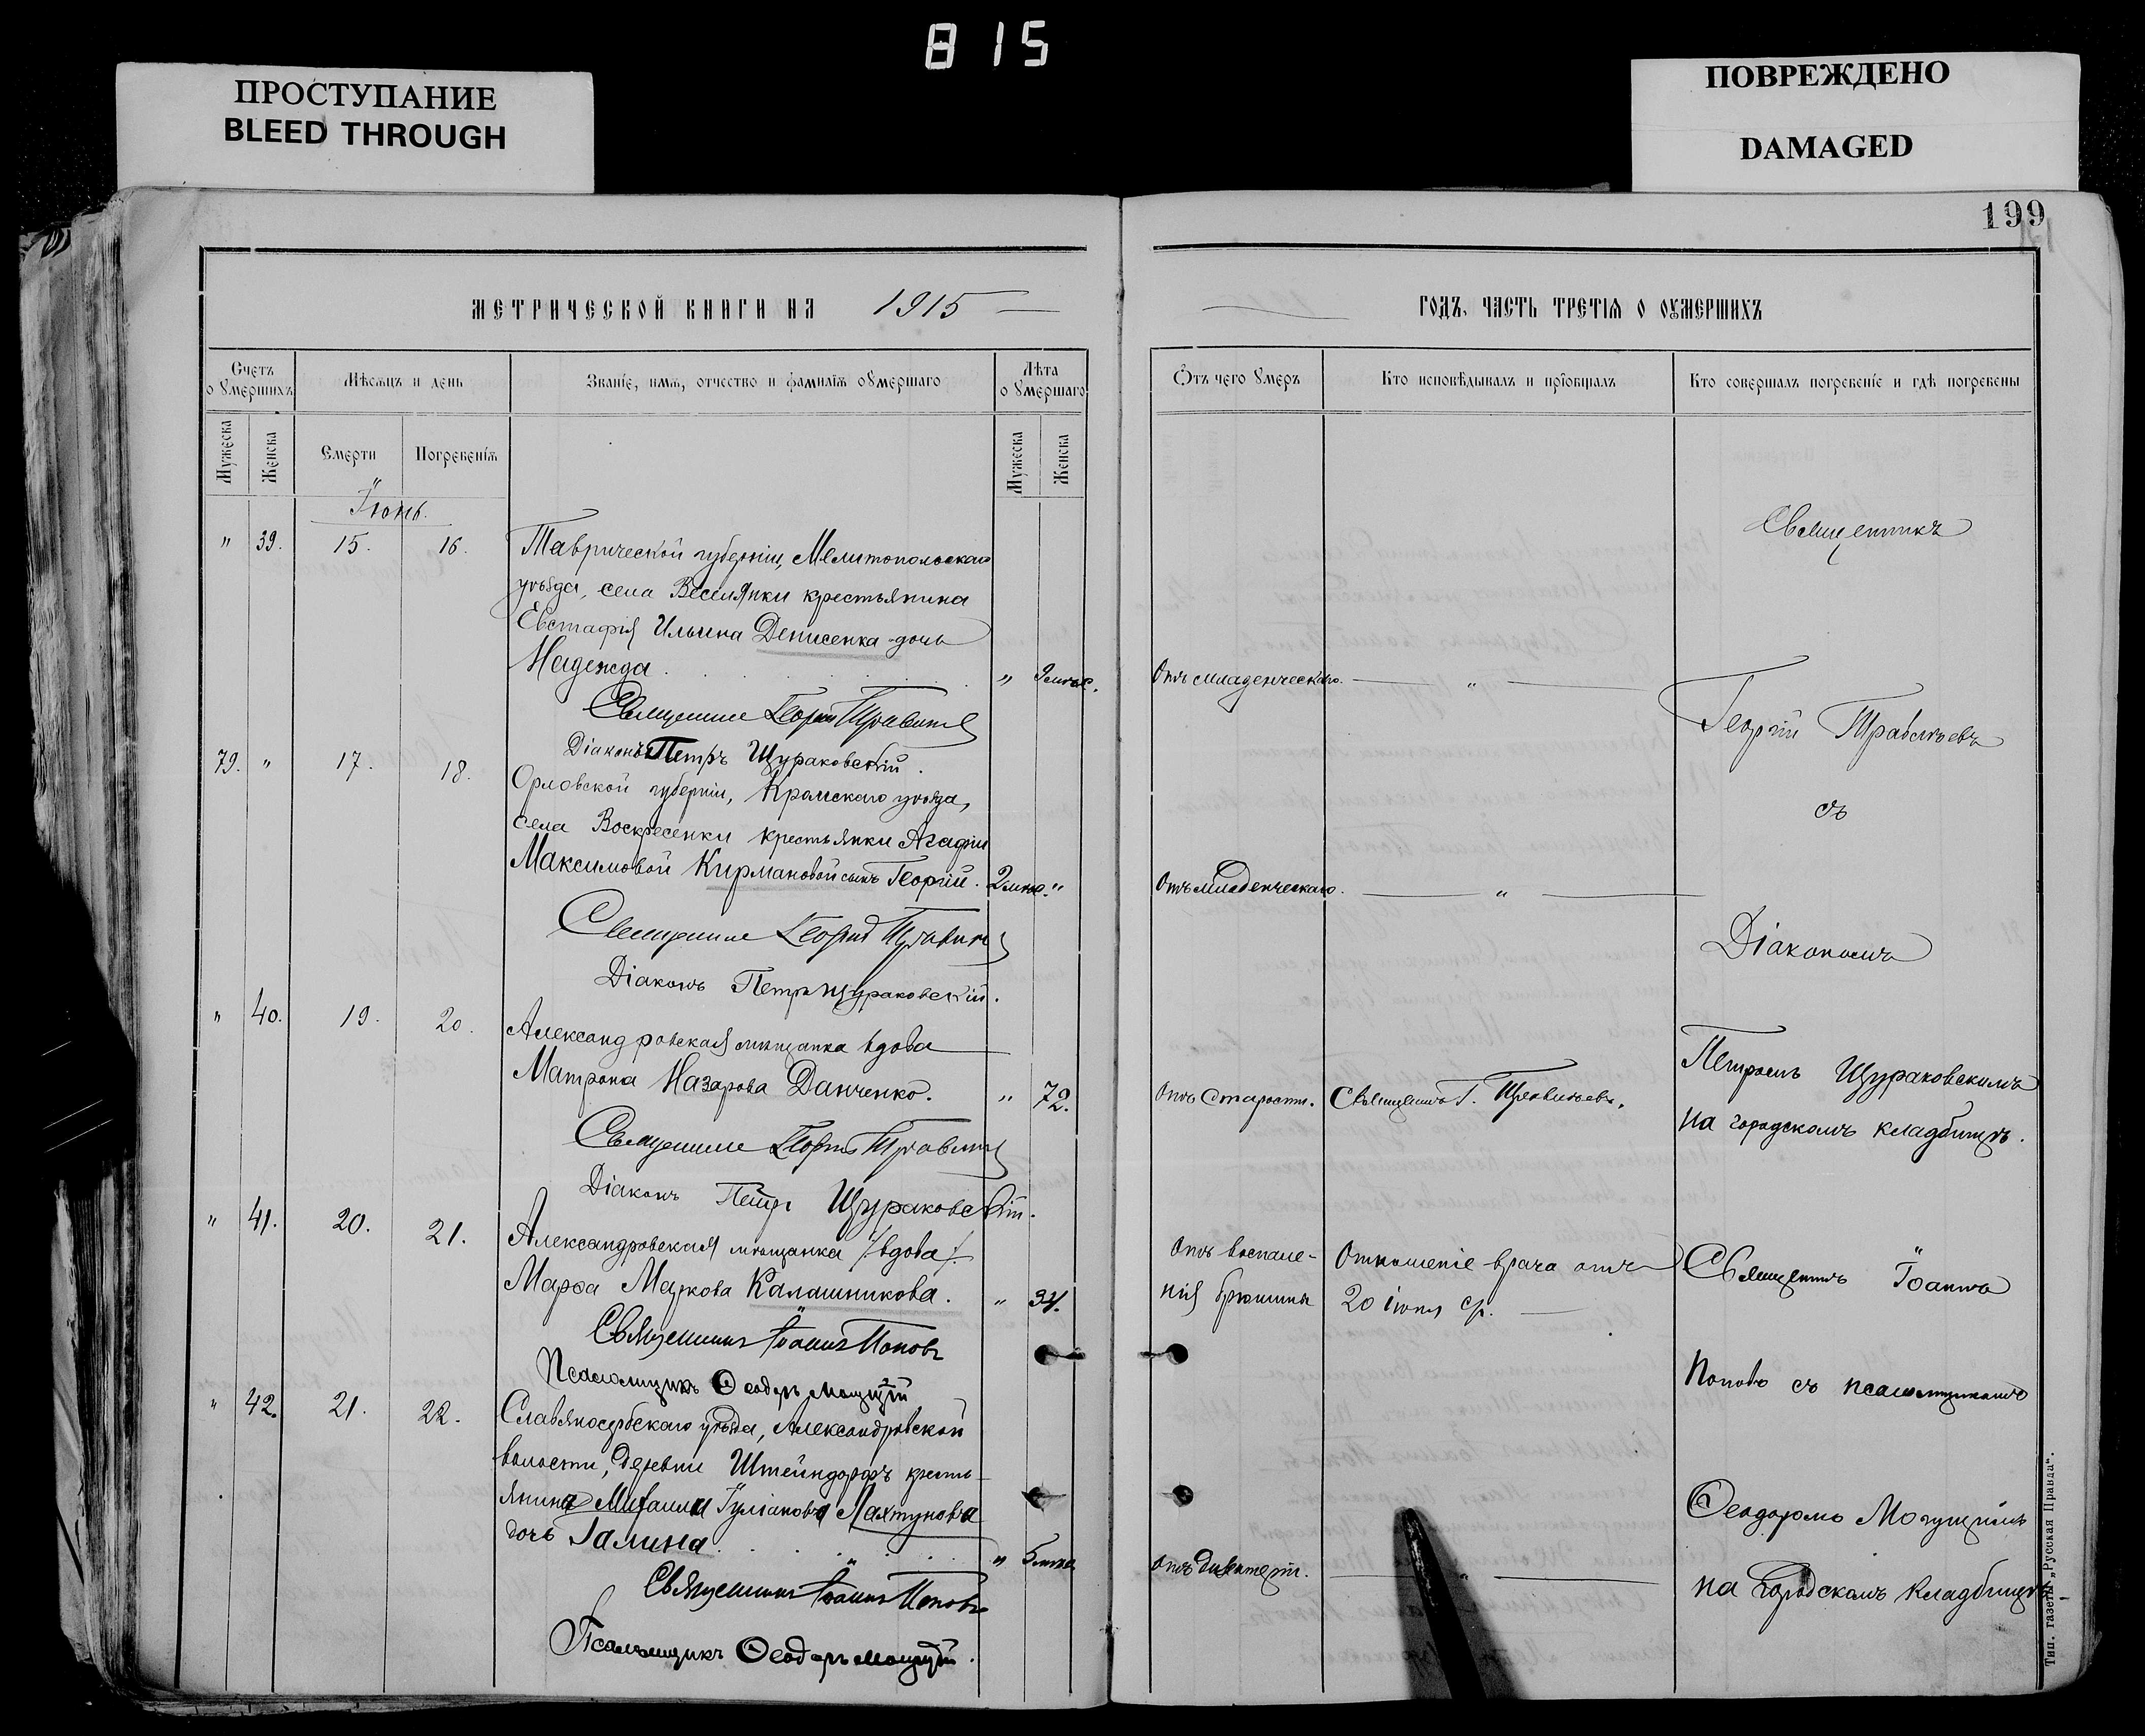 815
ПРОСТУПАНИЕ
BLEED THROUGH
ПОВРЕЖДЕНО
DAMAGED
199
МЕТРИЧЕСКОЙ КНИГИ НА 1915
ГОДЪ, ЧАСТЬ ТРЕТІЯ О ОУМЕРШИХЪ
Счетъ о умершихъ
Мѣсяцъ и день
Званіе, имя, отчество и фамилія оумершаго
Лѣта оумершаго
Отъ чего умеръ
Кто исповѣдывалъ и пріобщалъ
Кто совершалъ погребеніе и гдѣ погребены
Мужеска
Женска
Смерти
Погребенія
Мужеска
Женска
Іюнь.
" 39. 15. 16.
Таврической губерніи, Мелитопольскаго
уѣзда, села Веселянки крестьянина
Евстафія Ильина Денисенка дочь
Надежда . " 9 мѣс.
Отъ младенческаго. — " —
Священникъ Георгій
Діаконъ Петръ Щураковскій.
79. " 17. 18.
Орловской губерніи, Кромскаго уѣзда,
села Воскресенки крестьянки Агафіи
Максимовой Кирмановой сынъ Георгій. "
Отъ младенческаго. — " —
Священникъ Георгій
Діаконъ Петръ Щураковскій.
" 40. 19. 20.
Александровская мѣщанка вдова
Матрона Назарова Данченко. " 72.
Отъ старости. Священникъ Г.
Священникъ Георгій
Діаконъ Петръ Щураковскій.
Священникъ
Георгій
съ
Діакономъ
Петромъ Щураковскимъ
на городскомъ кладбищѣ.
" 41. 20. 21.
Александровская мѣщанка /вдова/.
Марѳа Маркова Калашникова. " 34.
Отъ воспале-
нія брюшины
Отношеніе врача отъ
20 іюня
Священникъ Іоаннъ Поповъ
Псаломщикъ Ѳеодоръ
" 42. 21. 22.
Славяносербскаго уѣзда, Александровской
волости, деревни Штейндорфъ кресть-
янина Михаила Іуліанова Лахтунова
дочь Галина . "
Отъ — " —
Священникъ Іоаннъ Поповъ
Псаломщикъ Ѳеодоръ
Священникъ Іоаннъ
Поповъ съ псаломщикомъ
Ѳеодоромъ
на городскомъ кладбищѣ
Тип. газеты „Русская Правда“.